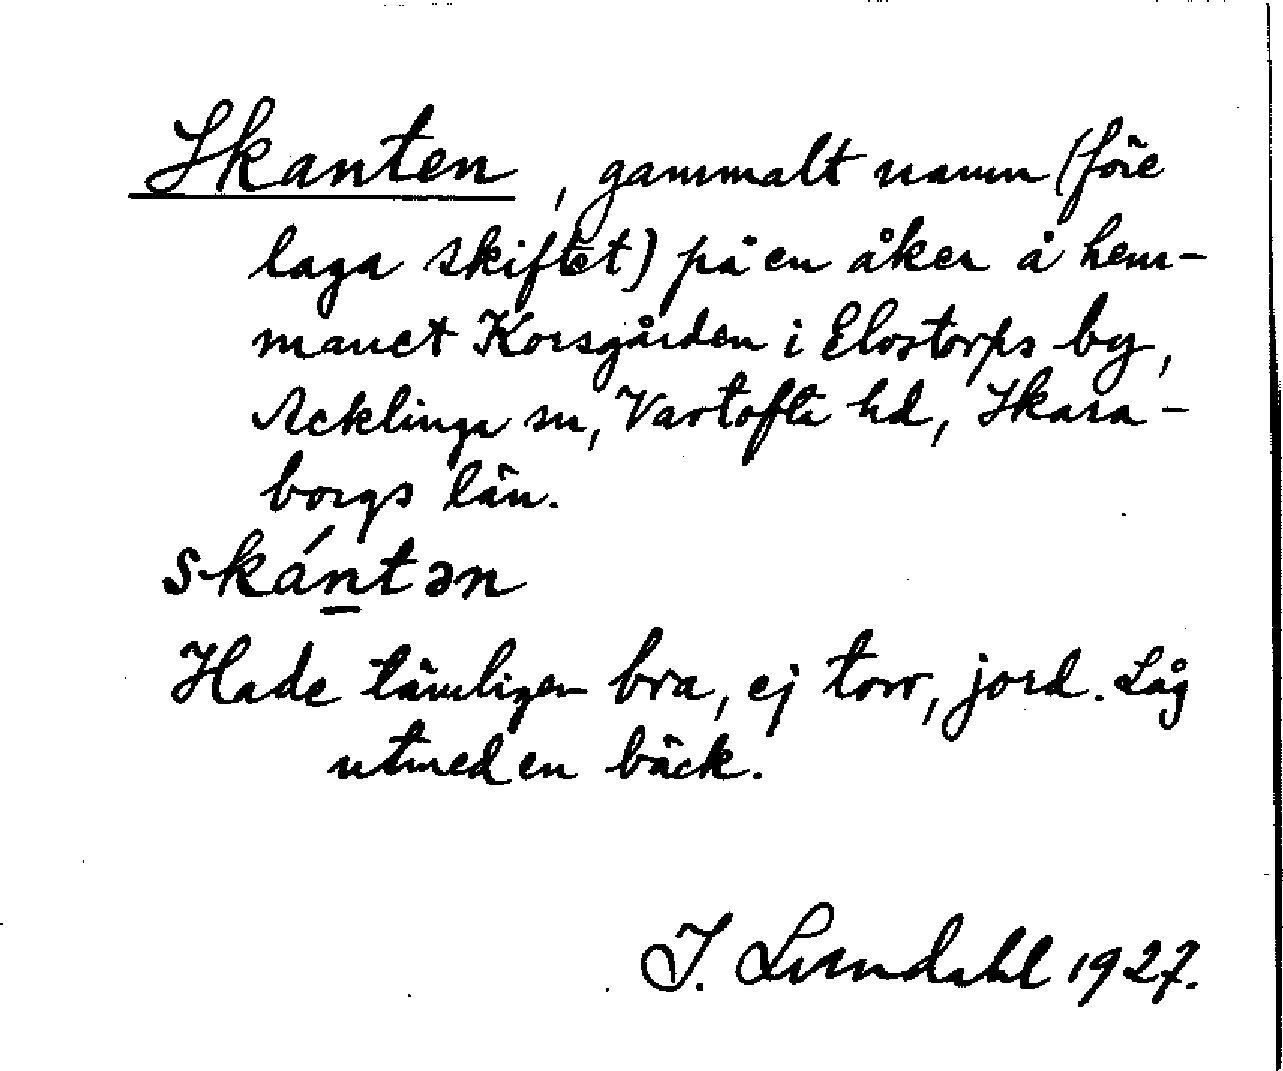 Skanten, gammalt namn (före
laga skiftet) på en åker å hem-
manet Korsgården i Elostorps by,
Acklinga sn, Vartofta hd, Skara-
borgs län.
skántən
Hade tämligen bra, ej torr, jord. Låg
utmed en bäck.
I. Lundahl 1927.